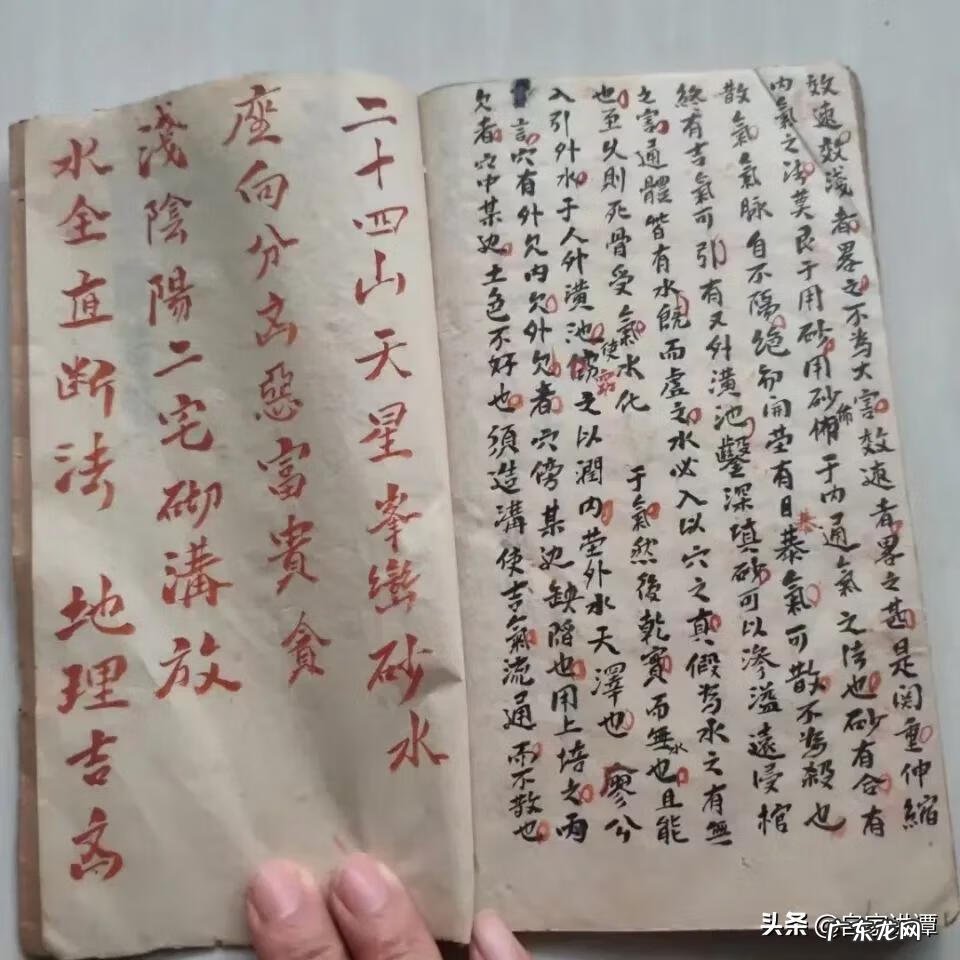 效速效淺者畧之不為大害效速者畧之甚是関重伸縮
内氣之法莫良于用砂用砂備于内通氣之法也砂有合有
散氣氣脉自不隔絶勿開茔有日暴氣可散不為殺也
終有吉氣可引有又外潢池鑿深填砂可以滲溢遠浸棺
之害通體皆有水既而虚之水必入以穴之真假為水之有無
也至以則死骨受氣水化于氣然後乾實而無水也且能
入引外水于人外潢池傍之以潤内茔外水天澤也廖公
言穴有外欠内欠外欠者穴傍某边缺陷也用上培之内
欠者穴中某边土色不好也須造溝使吉氣流通而不散也
二十四山天星峯巒砂水
座向分凶惡富貴貪
淺陰陽二宅砌溝放
水全直断法 地理吉凶
头条@名家讲谭
广东龙网